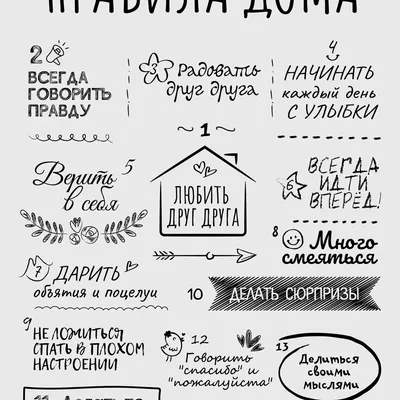 ПРАВИЛА ДОМА
1
ЛЮБИТЬ
ДРУГ ДРУГА
2
ВСЕГДА
ГОВОРИТЬ
ПРАВДУ
3
Радовать
друг друга
4
НАЧИНАТЬ
каждый день
С УЛЫБКИ
5
Верить
в себя
6
ВСЕГДА
ИДТИ
ВПЕРЁД!
7
ДАРИТЬ
объятия и поцелуи
8
Много
смеяться
9
НЕ ЛОЖИТЬСЯ
СПАТЬ В ПЛОХОМ
НАСТРОЕНИИ
10
ДЕЛАТЬ СЮРПРИЗЫ
11
12
Говорить
"спасибо" и
"пожалуйста"
13
Делиться
своими
мыслями